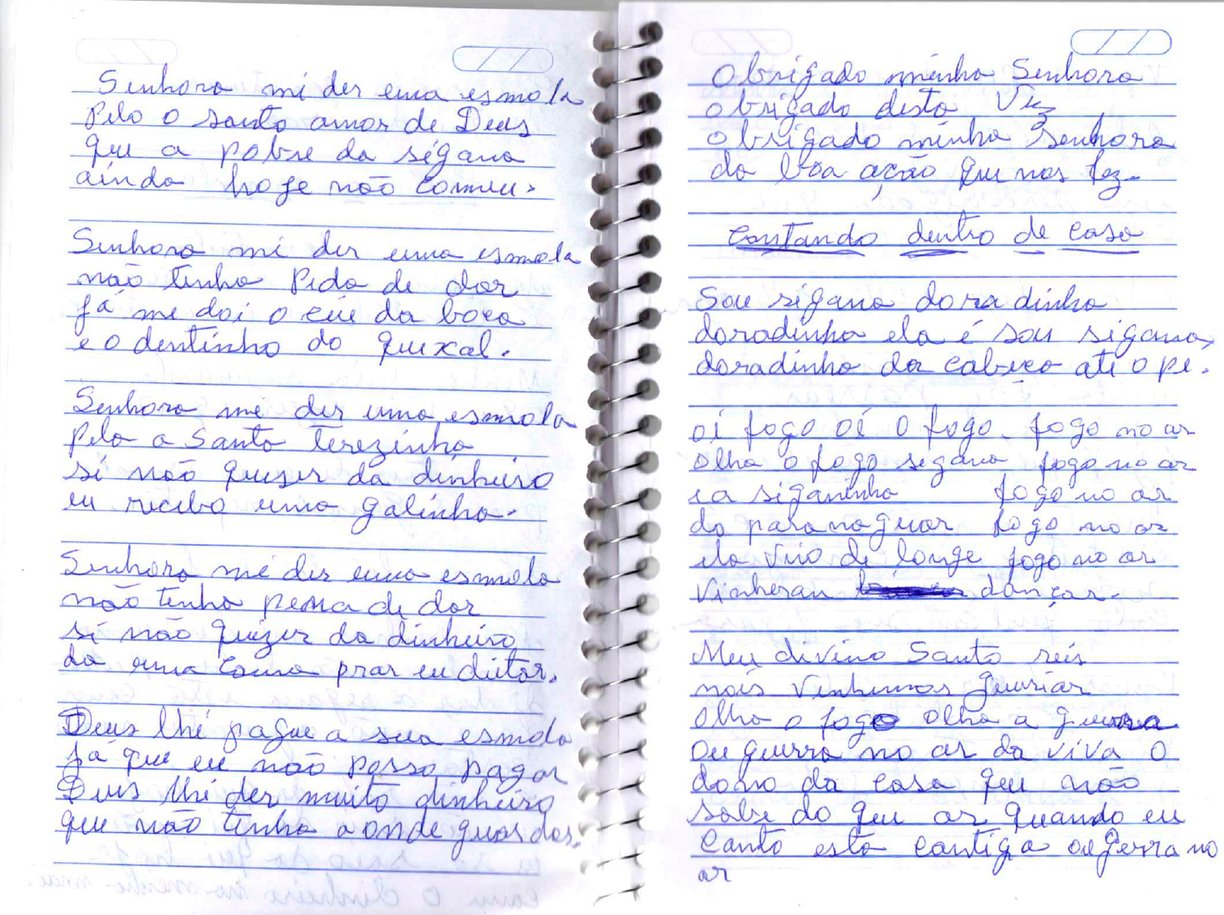 Senhora mi der uma esmola
Pelo o santo amor de Deus
que a pobre da sigana
ainda hoje não comeu.
Senhora mi der uma esmola
não tenha Pida de dor
já me doi o céu da boca
e o dentinho do queixal.
Senhora mi der uma esmola
Pelo a Santa terezinha
si não quizer da dinheiro
eu recibo uma galinha.
Senhora mi der uma esmola
não tenha pena de dor
si não quizer da dinheiro
da uma cama prar eu deitar.
Deus lhi pague a sua esmola
já que eu não posso pagar
Deus lhi der muito dinheiro
que não tenha aonde guardar.
Obrigado minha Senhora
obrigado desta Vez
obrigado minha Senhora
da boa ação que nos fez.
Contando dentro de casa
Sou sigana doradinha
doradinha ela é sou sigana,
doradinha da cabeça ate o pé.
oi fogo oí o fogo. fogo no ar
olha o fogo segana fogo no ar
ea siganinha fogo no ar
do paranaguar fogo no ar
ela vino de longe fogo no ar
Vinheran dançar.
Meu divino Santo reis
nois Vinhemos gueriar
olha o fogo olha a guerra
ou guerra no ar da viva o
dono da casa que não
sabe do que ar quando eu
Canto esta cantiga ou gerra no
ar